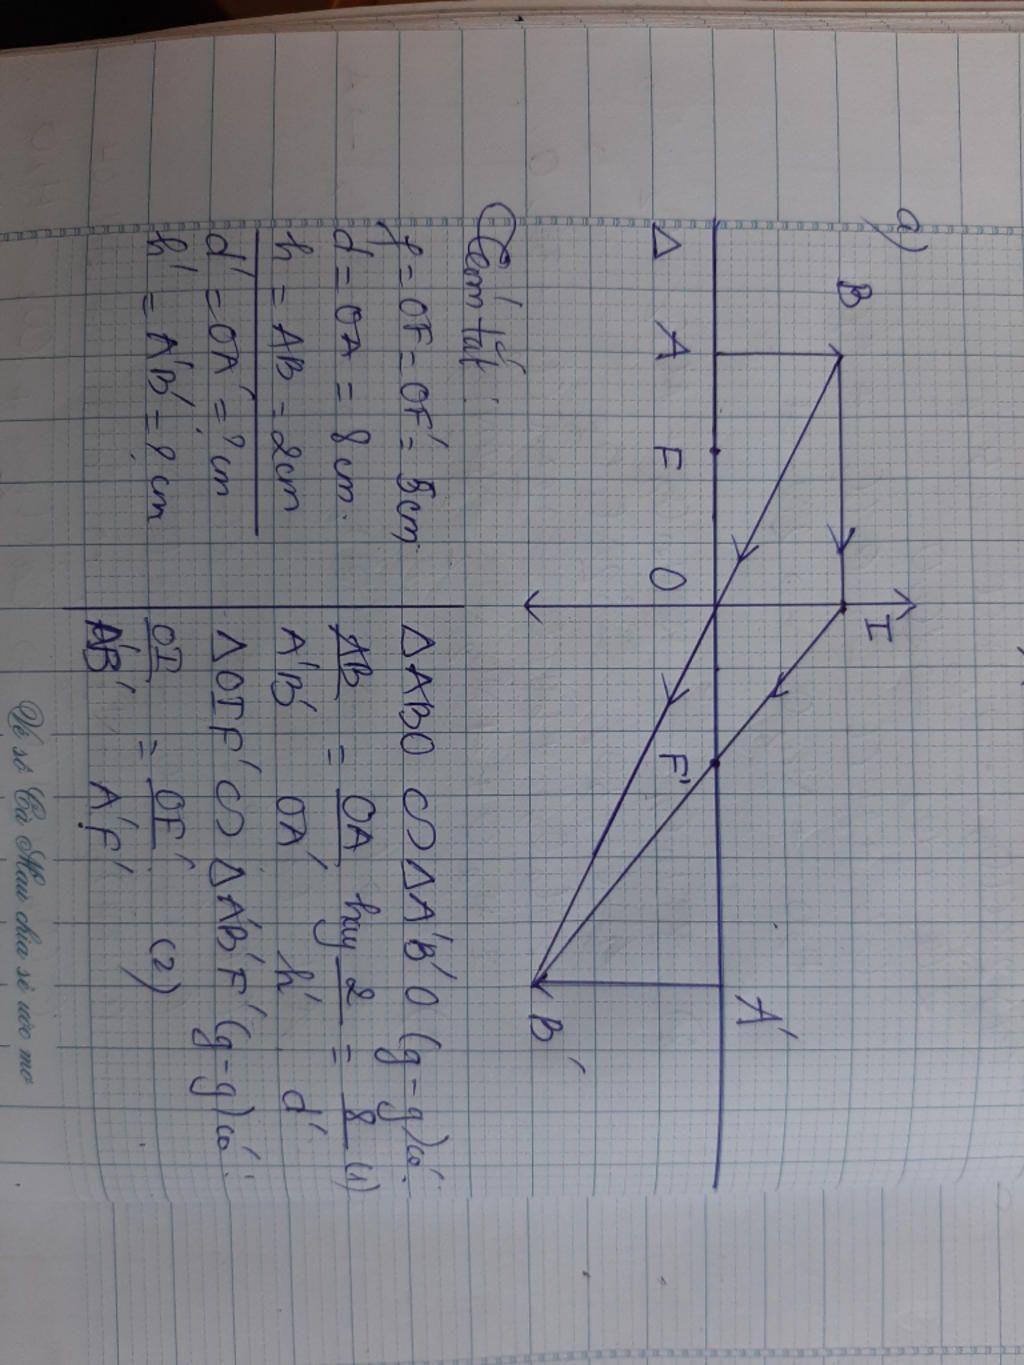 a)
B
I
Δ A F O F' A'
B'
Tóm tắt:
f = OF = OF' = 5cm
d = OA = 8 cm.
h = AB = 2cm
d' = OA' = ? cm
h' = A'B' = ? cm
ΔABO ∽ ΔA'B'O (g-g) có:
AB/A'B' = OA/OA' hay 2/h' = 8/d' (1)
ΔOIF' ∽ ΔA'B'F' (g-g) có:
OI/A'B' = OF'/A'F' (2)
Vé số Cà Mau chia sẻ ước mơ